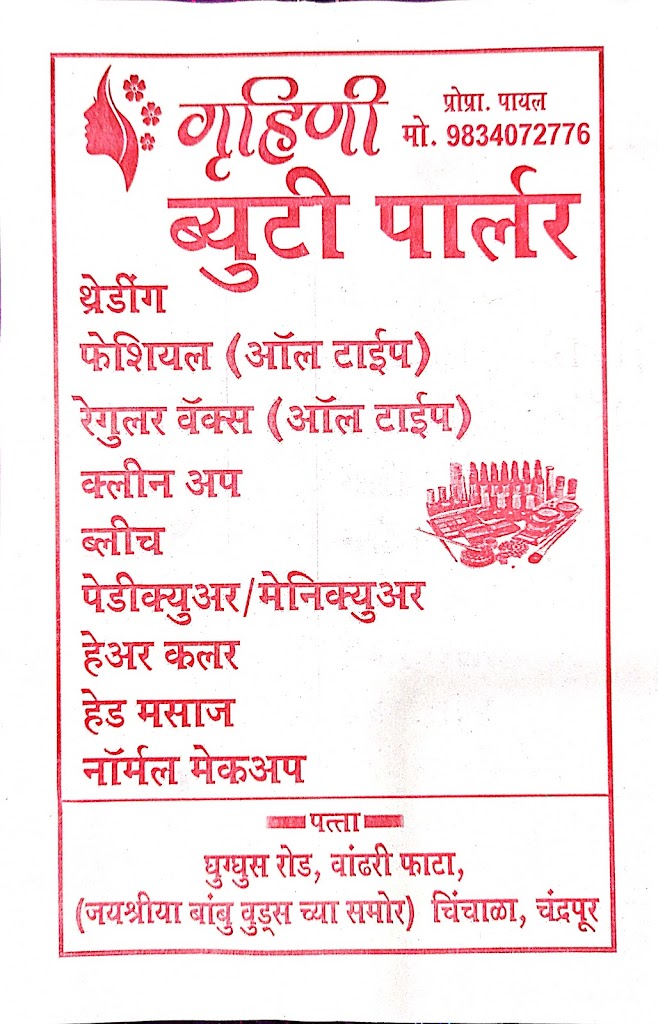 गृहिणी
प्रोप्रा. पायल
मो. 9834072776
ब्युटी पार्लर
थ्रेडींग
फेशियल (ऑल टाईप)
रेगुलर वॅक्स (ऑल टाईप)
क्लीन अप
ब्लीच
पेडीक्युअर/मेनिक्युअर
हेअर कलर
हेड मसाज
नॉर्मल मेकअप
पत्ता
घुग्घुस रोड, वांढरी फाटा,
(जयश्रीया बांबु वुड्स च्या समोर) चिंचाळा, चंद्रपूर